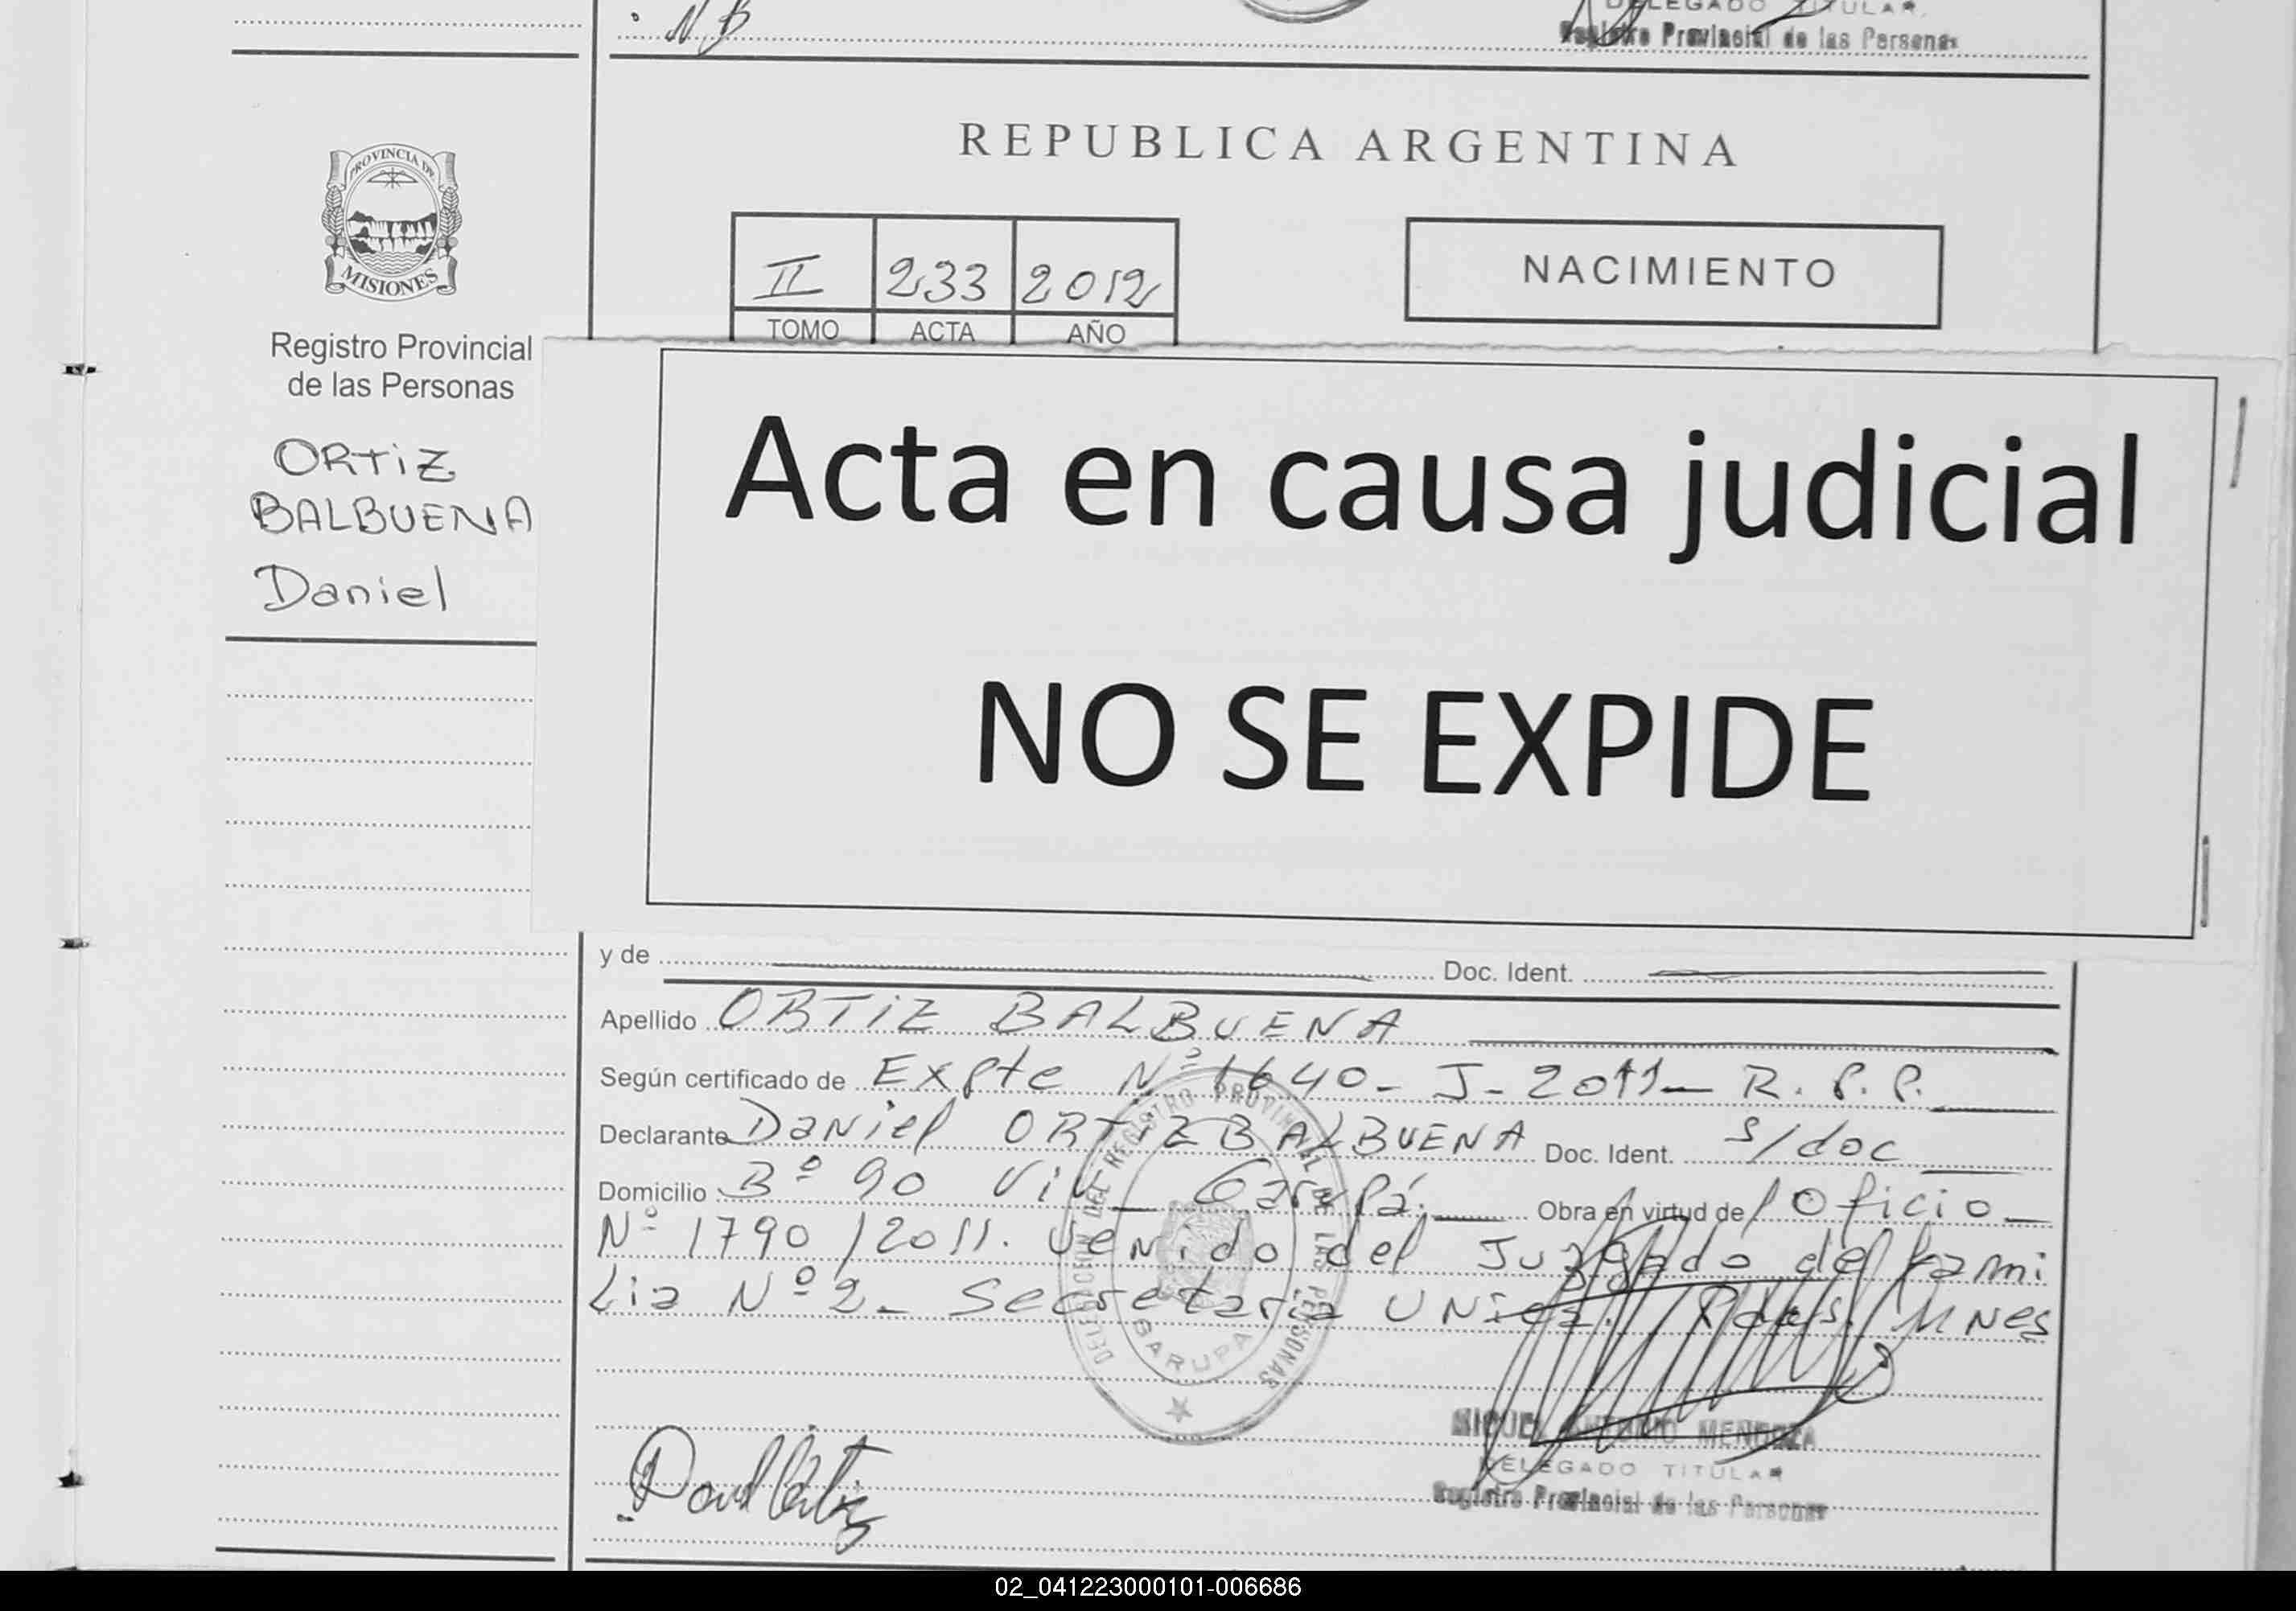 DELEGADO TITULAR
Registro Provincial de las Personas
PROVINCIA DE
MISIONES
Registro Provincial
de las Personas
ORTIZ
BALBUENA
Daniel
REPUBLICA ARGENTINA
II 233 2012
TOMO ACTA AÑO
NACIMIENTO
Acta en causa judicial
NO SE EXPIDE
y de Doc. Ident.
Apellido ORTIZ BALBUENA
Según certificado de Expte Nº 1640- J- 2011- R. P. P.
Declarante Daniel ORTIZ BALBUENA Doc. Ident. s/doc
Domicilio Bº 90 Viv Garupá. Obra en virtud de Oficio
Nº 1790/2011. venido del Juzgado de Fami
lia Nº 2- Secretaria UNica. Pdas. Mnes
DELEGACION DEL REGISTRO PROVINCIAL DE LAS PERSONAS
GARUPA
MIGUEL ANTONIO MENDOZA
DELEGADO TITULAR
Registro Provincial de las Personas
02_041223000101-006686